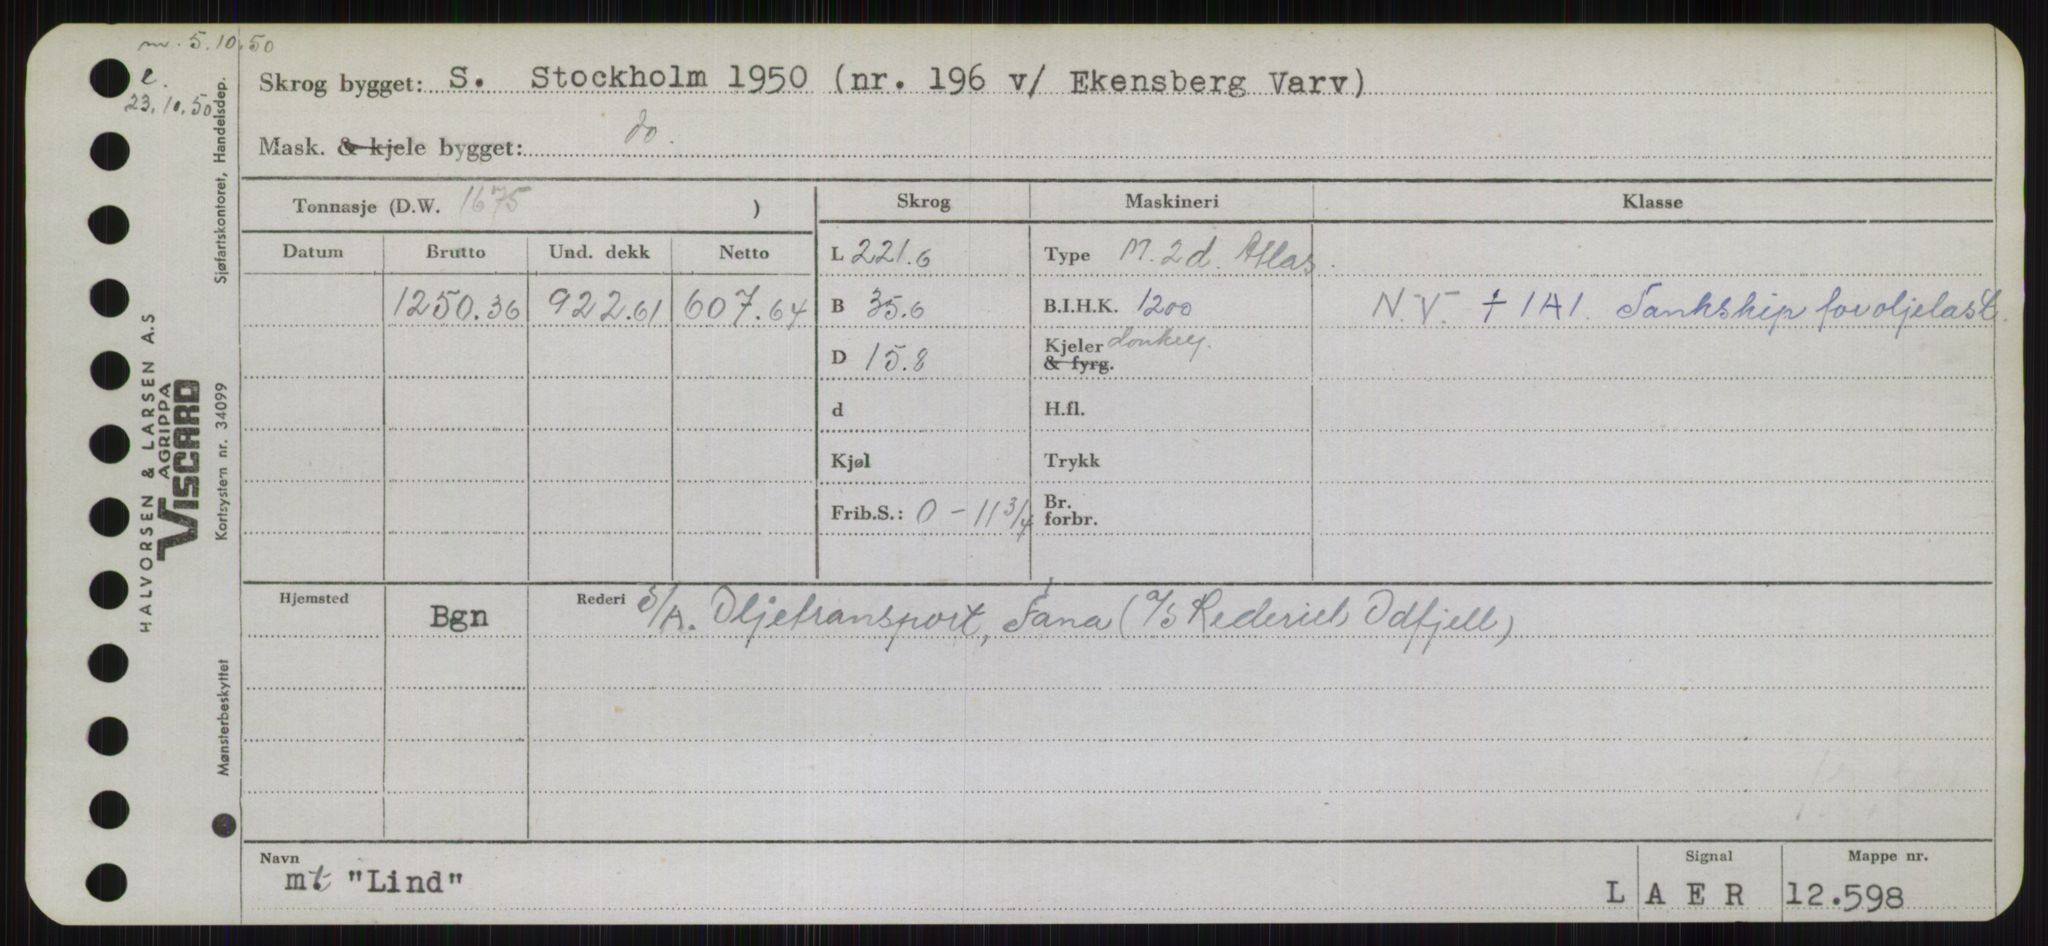 m. 5.10.50
e.
23.10.50
Skrog bygget: S. Stockholm 1950 (nr. 196 v/ Ekensberg Varv)
Mask. & kjele bygget: do.
Tonnasje (D.W. 1675 )
Skrog Maskineri Klasse
Datum Brutto Und. dekk Netto
L 221.6 Type M. 2 d. Atlas.
1250.36 922.61 607.64 B 35.6 B.I.H.K. 1200 N.V. + 1A1. Tankskip for oljelast.
D 15.8 Kjeler donkey.
& fyrg.
d H.fl.
Kjøl Trykk
Frib.S.: 0 - 11 3/4 Br.
forbr.
Hjemsted Bgn Rederi S/A. Oljetransport, Fana (A/S Rederiet Odfjell)
Navn Signal Mappe nr.
mt "Lind" L A E R 12.598
HALVORSEN & LARSEN A.S
AGRIPPA
VISCARD
Sjøfartskontoret, Handelsdep.
Kortsystem nr. 34099
Mønsterbeskyttet